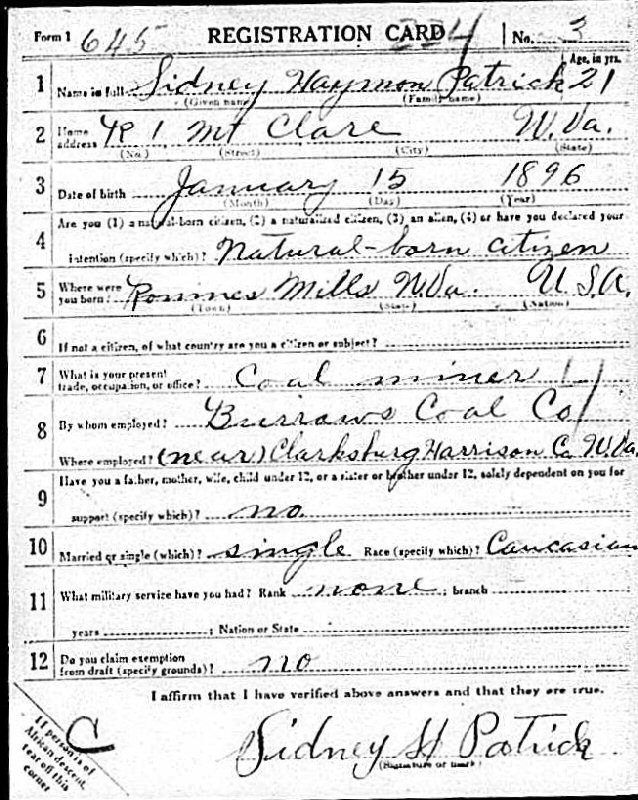 Form 1 645 REGISTRATION CARD 224 No. 3
1 Name in full Sidney Haymon Patrick 21 Age, in yrs.
(Given name) (Family name)
2 Home address R 1 Mt Clare W. Va.
(No.) (Street) (City) (State)
3 Date of birth January 15 1896
(Month) (Day) (Year)
Are you (1) a natural-born citizen, (2) a naturalized citizen, (3) an alien, (4) or have you declared your
4 intention (specify which)? Natural-born citizen
5 Where were you born? Romines Mills W.Va. U.S.A.
(Town) (State) (Nation)
6 If not a citizen, of what country are you a citizen or subject?
7 What is your present trade, occupation, or office? Coal miner
8 By whom employed? Burrows Coal Co
Where employed? (near) Clarksburg Harrison Co. W.Va.
Have you a father, mother, wife, child under 12, or a sister or brother under 12, solely dependent on you for
9 support (specify which)? no.
10 Married or single (which)? single Race (specify which)? Caucasian
11 What military service have you had? Rank none ; branch
years ; Nation or State
12 Do you claim exemption from draft (specify grounds)? no
I affirm that I have verified above answers and that they are true.
C
Sidney H Patrick
(Signature or mark)
If person is of
African descent,
tear off this
corner